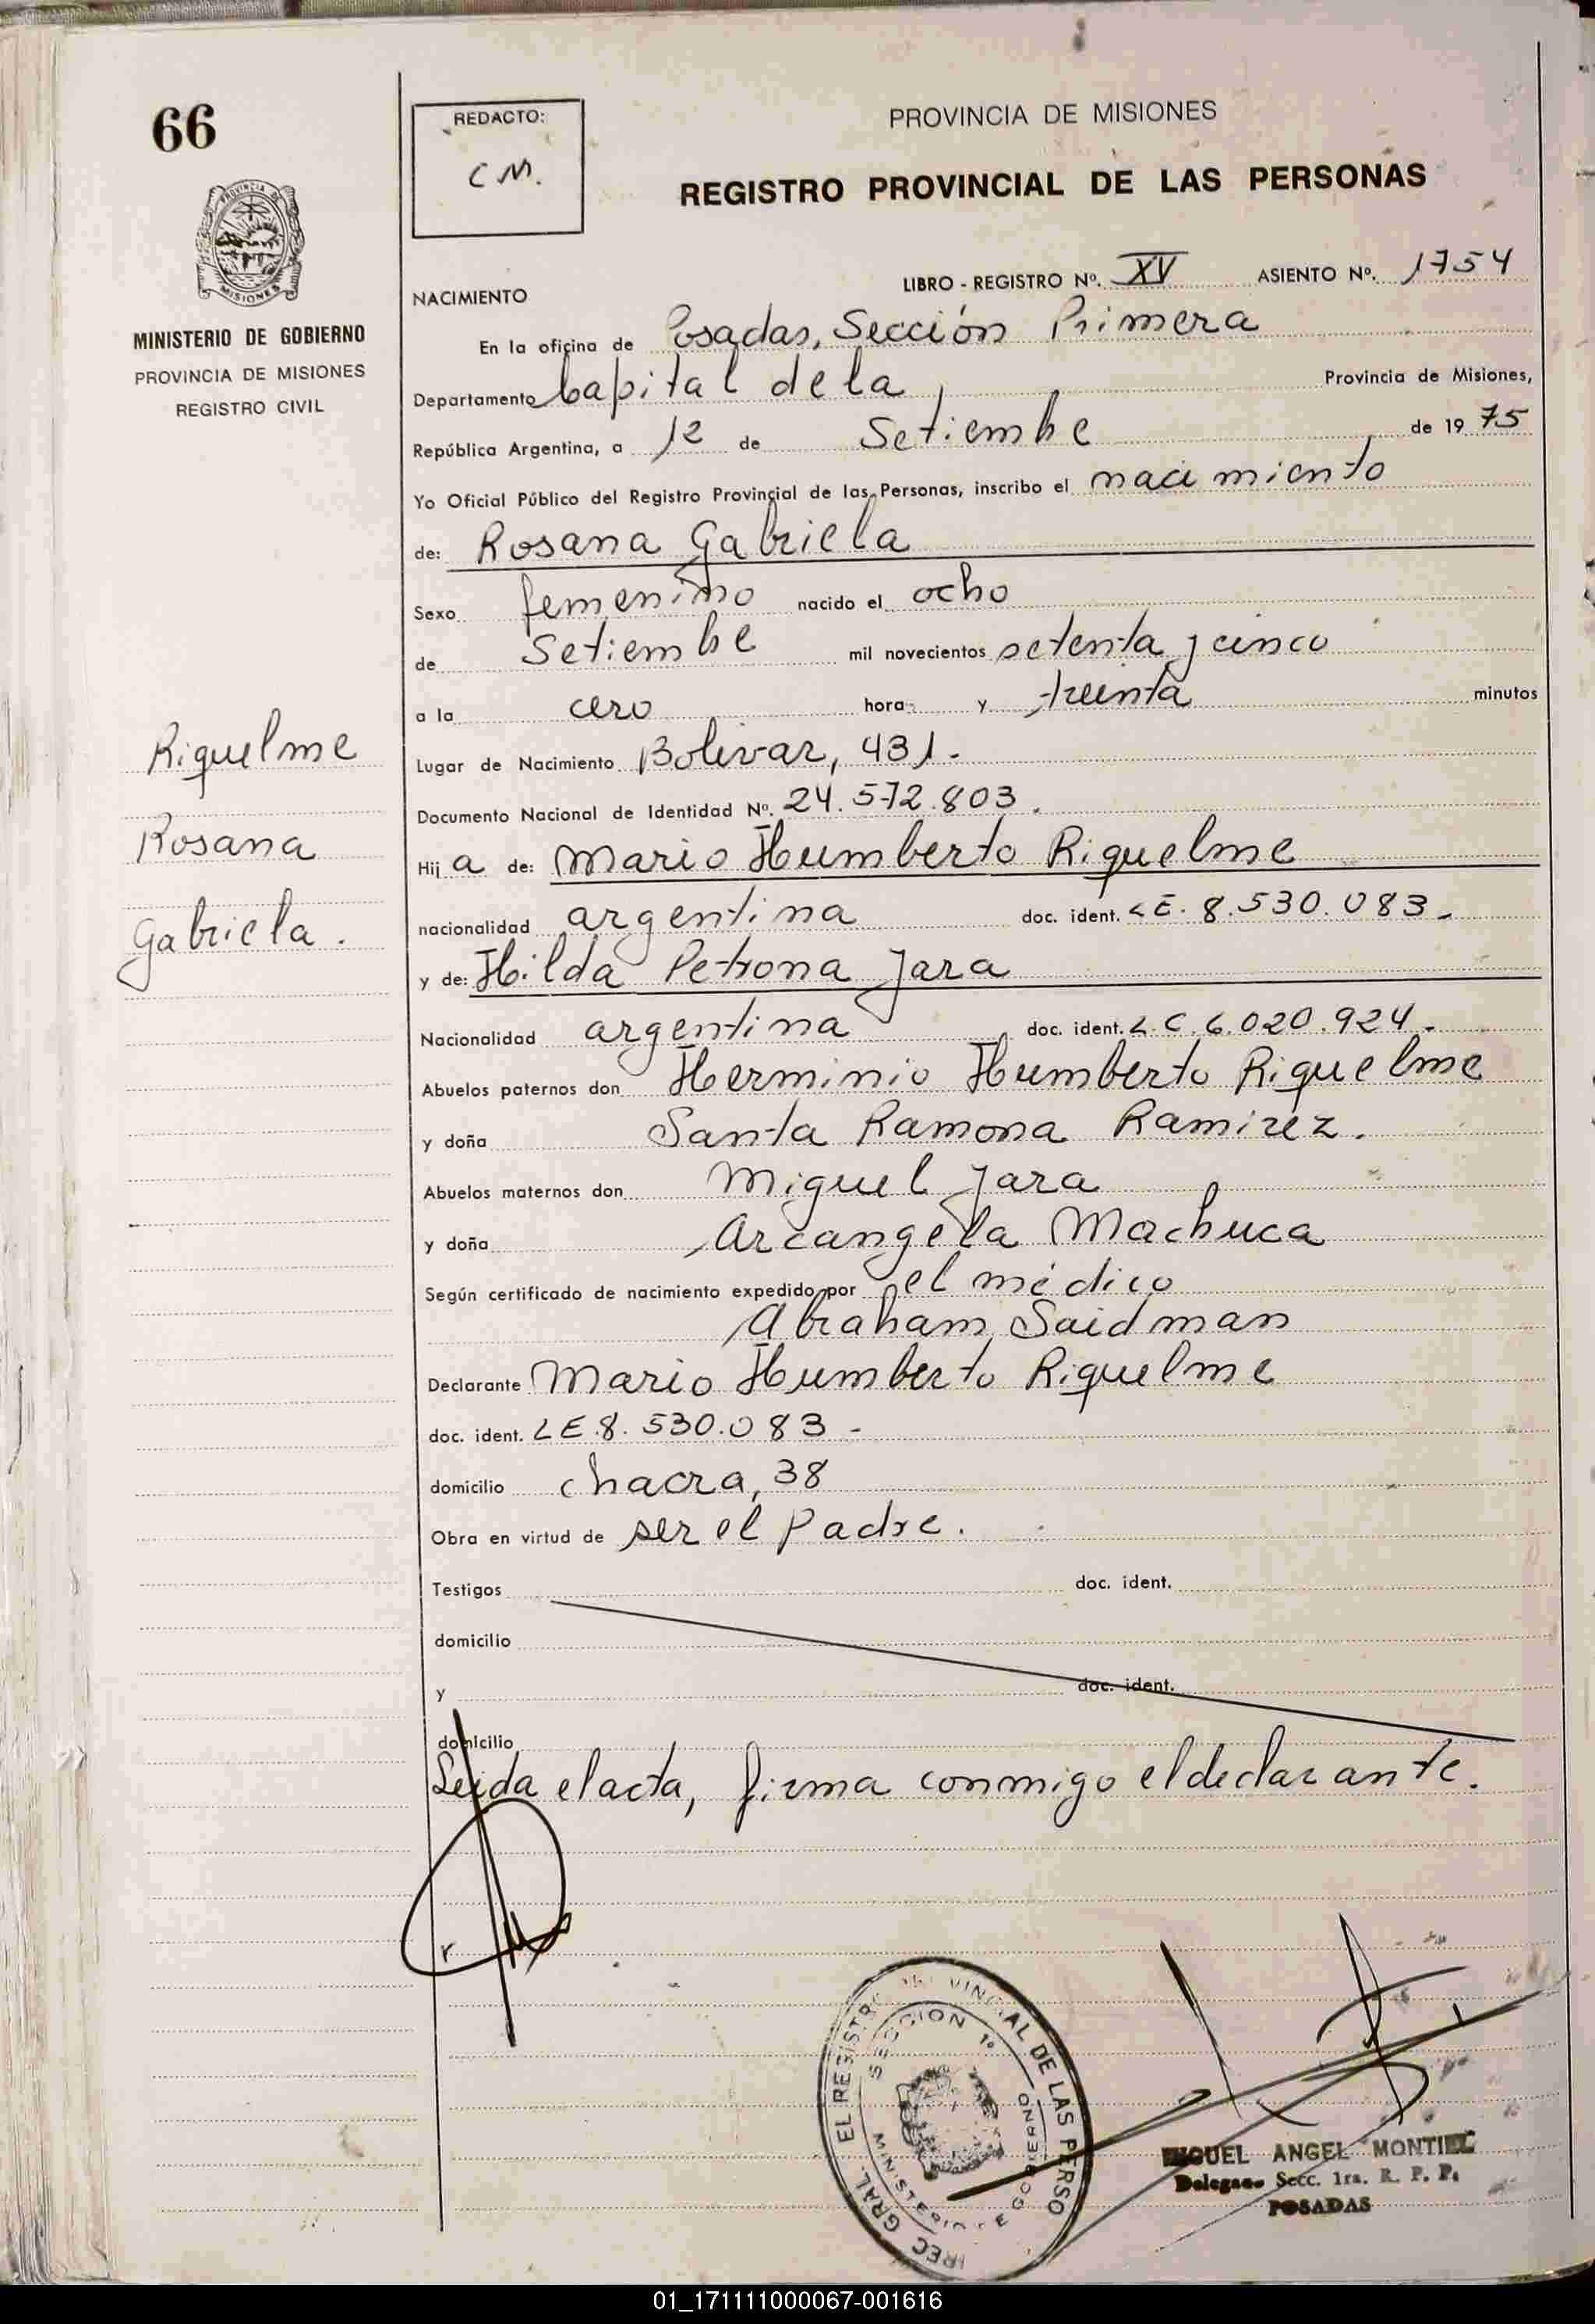 66
REDACTO:
C M.
PROVINCIA DE MISIONES
REGISTRO PROVINCIAL DE LAS PERSONAS
PROVINCIA DE
MISIONES
MINISTERIO DE GOBIERNO
PROVINCIA DE MISIONES
REGISTRO CIVIL
LIBRO - REGISTRO Nº. XV ASIENTO Nº. 1754
NACIMIENTO
En la oficina de Posadas, Sección Primera
Departamento Capital de la Provincia de Misiones,
República Argentina, a 12 de Setiembre de 1975
Yo Oficial Público del Registro Provincial de las Personas, inscribo el nacimiento
de: Rosana Gabriela
Sexo femenino nacido el ocho
de Setiembre mil novecientos setenta y cinco
a la cero hora y treinta minutos
Lugar de Nacimiento Bolivar, 431.-
Documento Nacional de Identidad Nº. 24.572.803.
Hij a de: Mario Humberto Riquelme
nacionalidad argentina doc. ident. LE. 8.530.083.-
y de: Hilda Petrona Jara
Nacionalidad argentina doc. ident. L.C. 6.020.924.-
Abuelos paternos don Herminio Humberto Riquelme
y doña Santa Ramona Ramirez.
Abuelos maternos don Miguel Jara
y doña Arcangela Machuca
Según certificado de nacimiento expedido por el médico
Abraham Saidman
Declarante Mario Humberto Riquelme
doc. ident. LE.8.530.083-
domicilio chacra, 38
Obra en virtud de ser el Padre.
Testigos doc. ident.
domicilio
y doc. ident.
domicilio
Leida el acta, firma conmigo el declarante.
Riquelme
Rosana
Gabriela.
DIREC. GRAL. EL REGISTRO PROVINCIAL DE LAS PERSO
SECCION 1º
MINISTERIO DE GOBIERNO
MIGUEL ANGEL MONTIEL
Delegado Secc. 1ra. R. P. P.
POSADAS
01_171111000067-001616